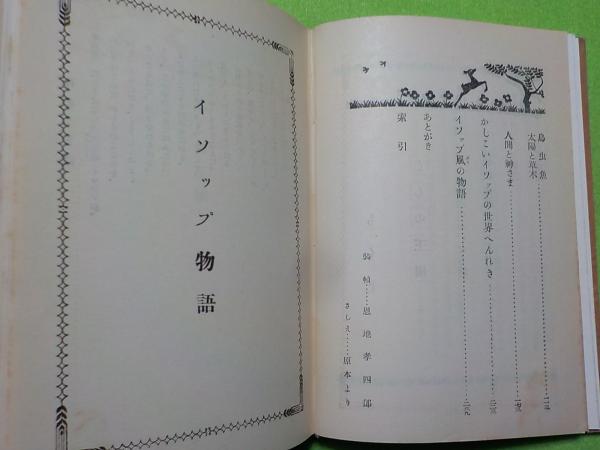 鳥虫魚
太陽と草木
人間と神さま
かしこいイソップの世界へんれき
イソップ風の物語
あとがき
索引
装幀……恩地孝四郎
さしえ……原本より
イソップ物語